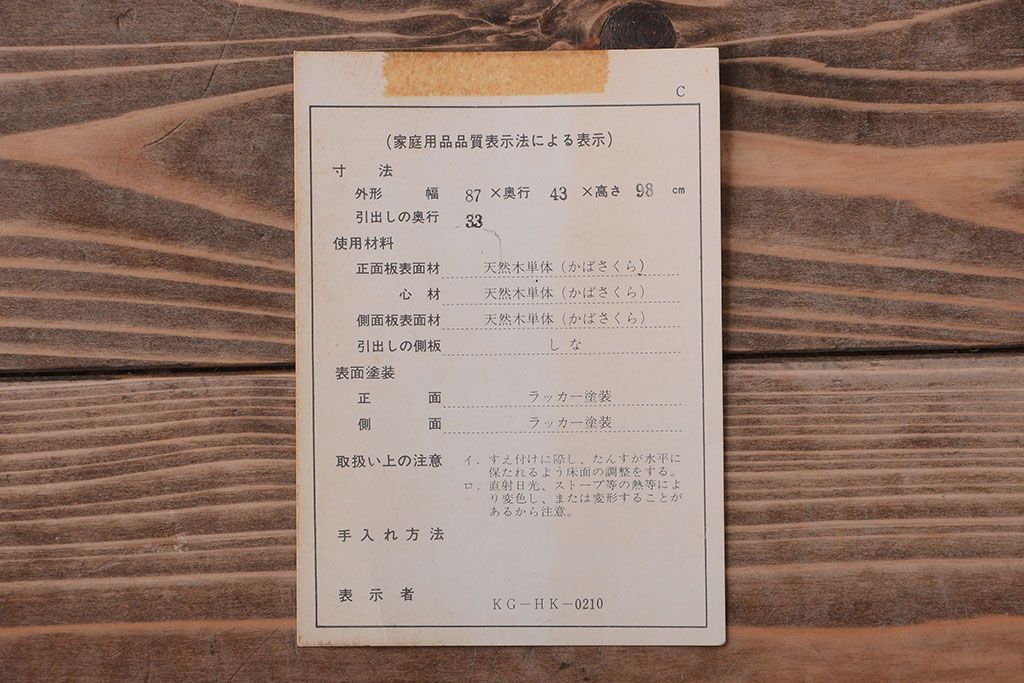 C
（家庭用品品質表示法による表示）
寸　法
外形　幅　87 ×奥行　43　×高さ　98　cm
引出しの奥行　33
使用材料
正面板表面材　天然木単体（かばさくら）
心材　天然木単体（かばさくら）
側面板表面材　天然木単体（かばさくら）
引出しの側板　しな
表面塗装
正　面　ラッカー塗装
側　面　ラッカー塗装
取扱い上の注意　イ．すえ付けに際し、たんすが水平に
保たれるよう床面の調整をする。
ロ．直射日光、ストーブ等の熱等によ
り変色し、または変形することが
あるから注意。
手入れ方法
表示者　KG－HK－0210